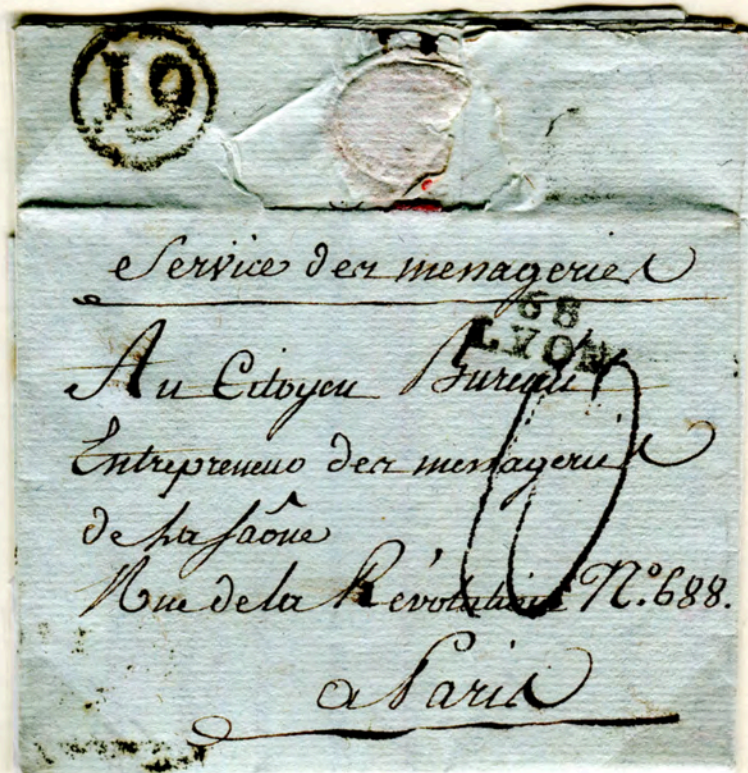 19
Service des messageries
68
LYON
Au Citoyen Bureau
Entrepreneur des messageries
de la Saône
Rue de la Révolution N.º 688.
a Paris